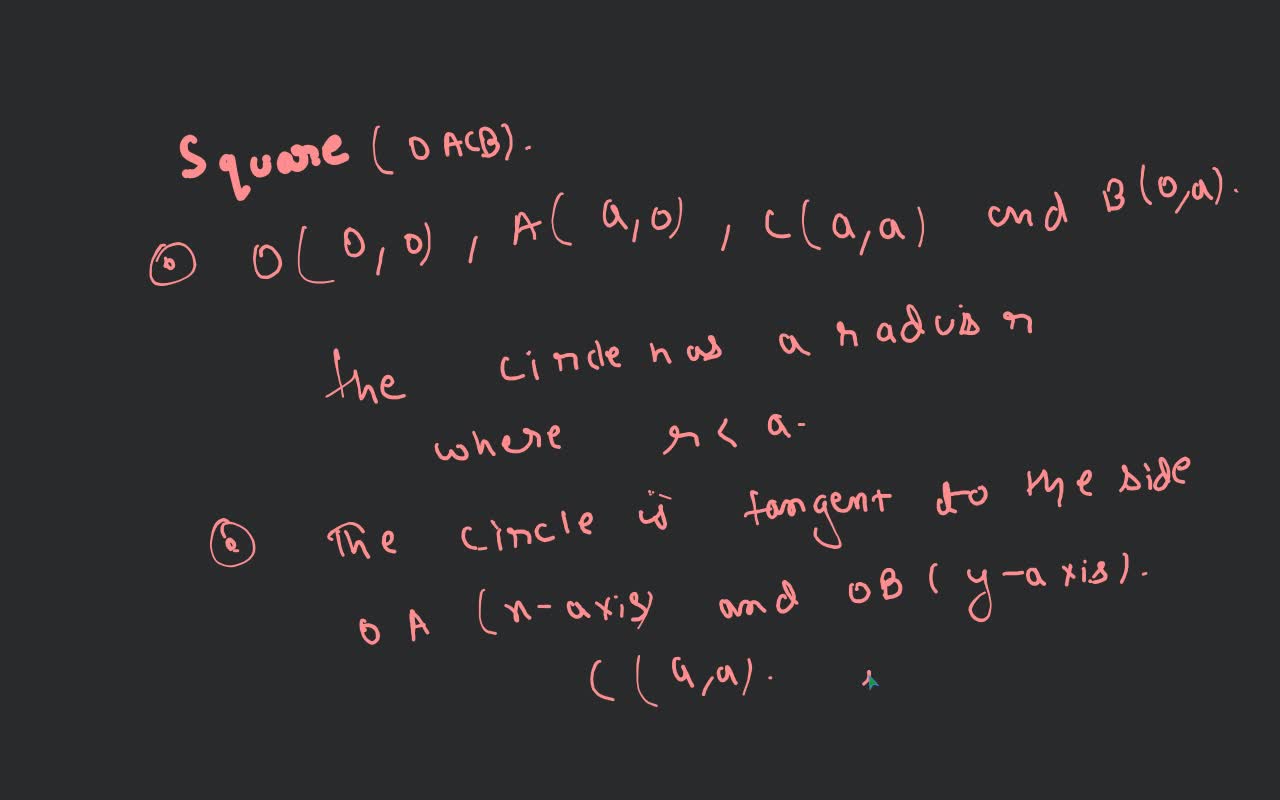 Square (OACB).
O(0,0), A(a,0), C(a,a) and B(0,a).
the circle has a radius r
where r < a.
The circle is tangent to the side
OA (x-axis) and OB (y-axis).
C(a,a).